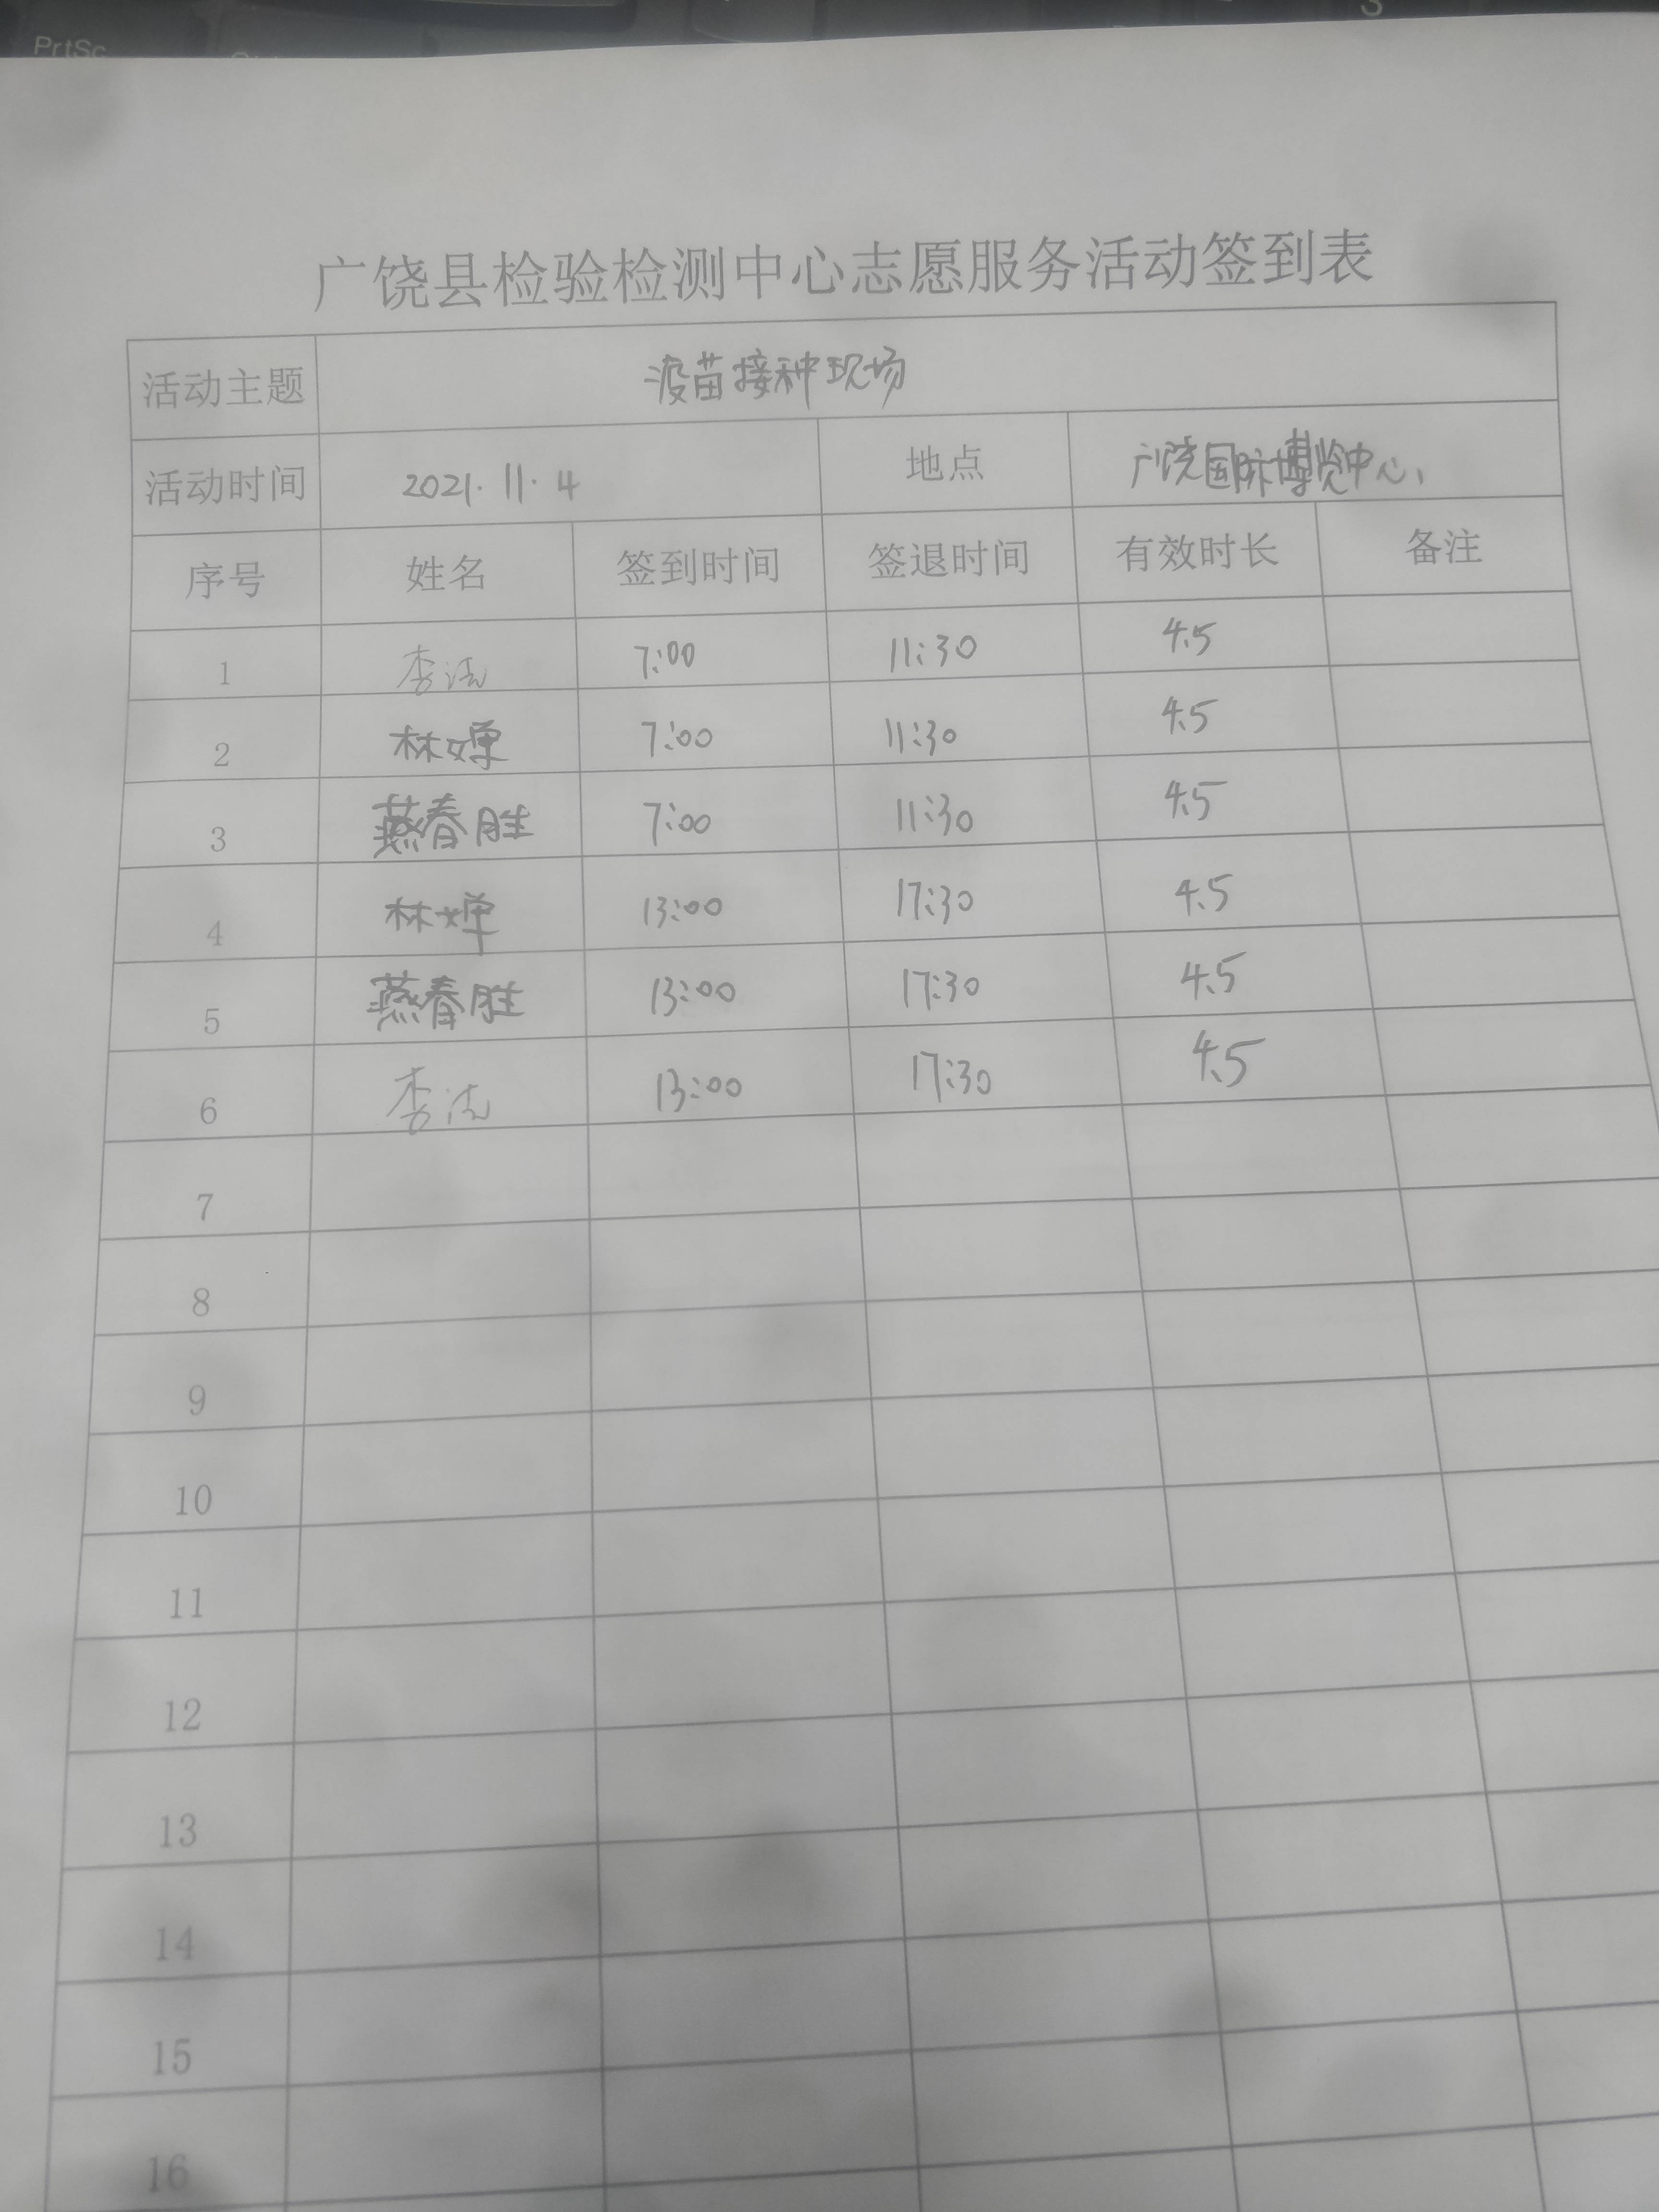 PrtSc
3
广饶县检验检测中心志愿服务活动签到表
活动主题 疫苗接种现场
活动时间 2021.11.4 地点 广饶国际博览中心
序号 姓名 签到时间 签退时间 有效时长 备注
1 李洁 7:00 11:30 4.5
2 林婵 7:00 11:30 4.5
3 燕春胜 7:00 11:30 4.5
4 林婵 13:00 17:30 4.5
5 燕春胜 13:00 17:30 4.5
6 李洁 13:00 17:30 4.5
7
8
9
10
11
12
13
14
15
16